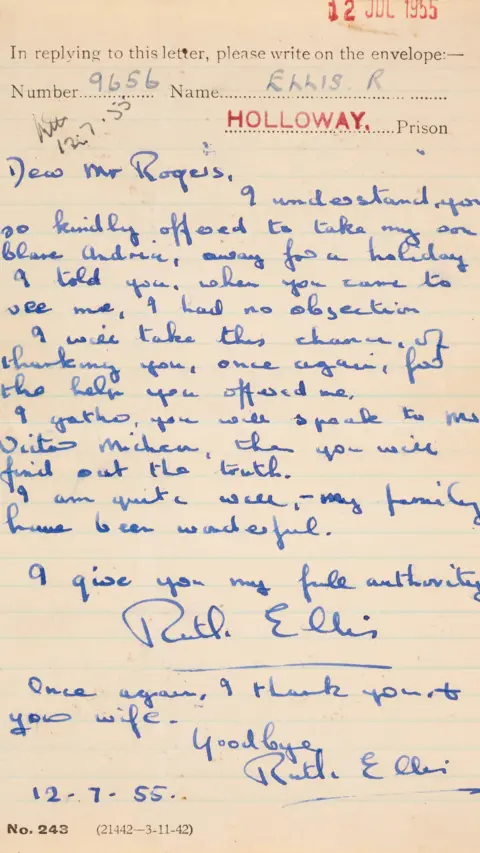 12 JUL 1955
In replying to this letter, please write on the envelope:—
Number 9656 Name ELLIS R
HOLLOWAY. Prison
12.7.55
Dear Mr Rogers,
I understand, you
so kindly offered to take my son
Clare Andria, away for a holiday
I told you, when you came to
see me, I had no obsection
I will take this chance, of
thanking you, once again, for
the help you offered me.
I gather, you will speak to Mr
Victor Mickon, then you will
find out the truth.
I am quite well, – my family
have been wonderful.
I give you my full authority
Ruth Ellis
Once again, I thank you, &
your wife.
Goodbye
Ruth Ellis
12-7-55.
No. 243 (21442—3-11-42)